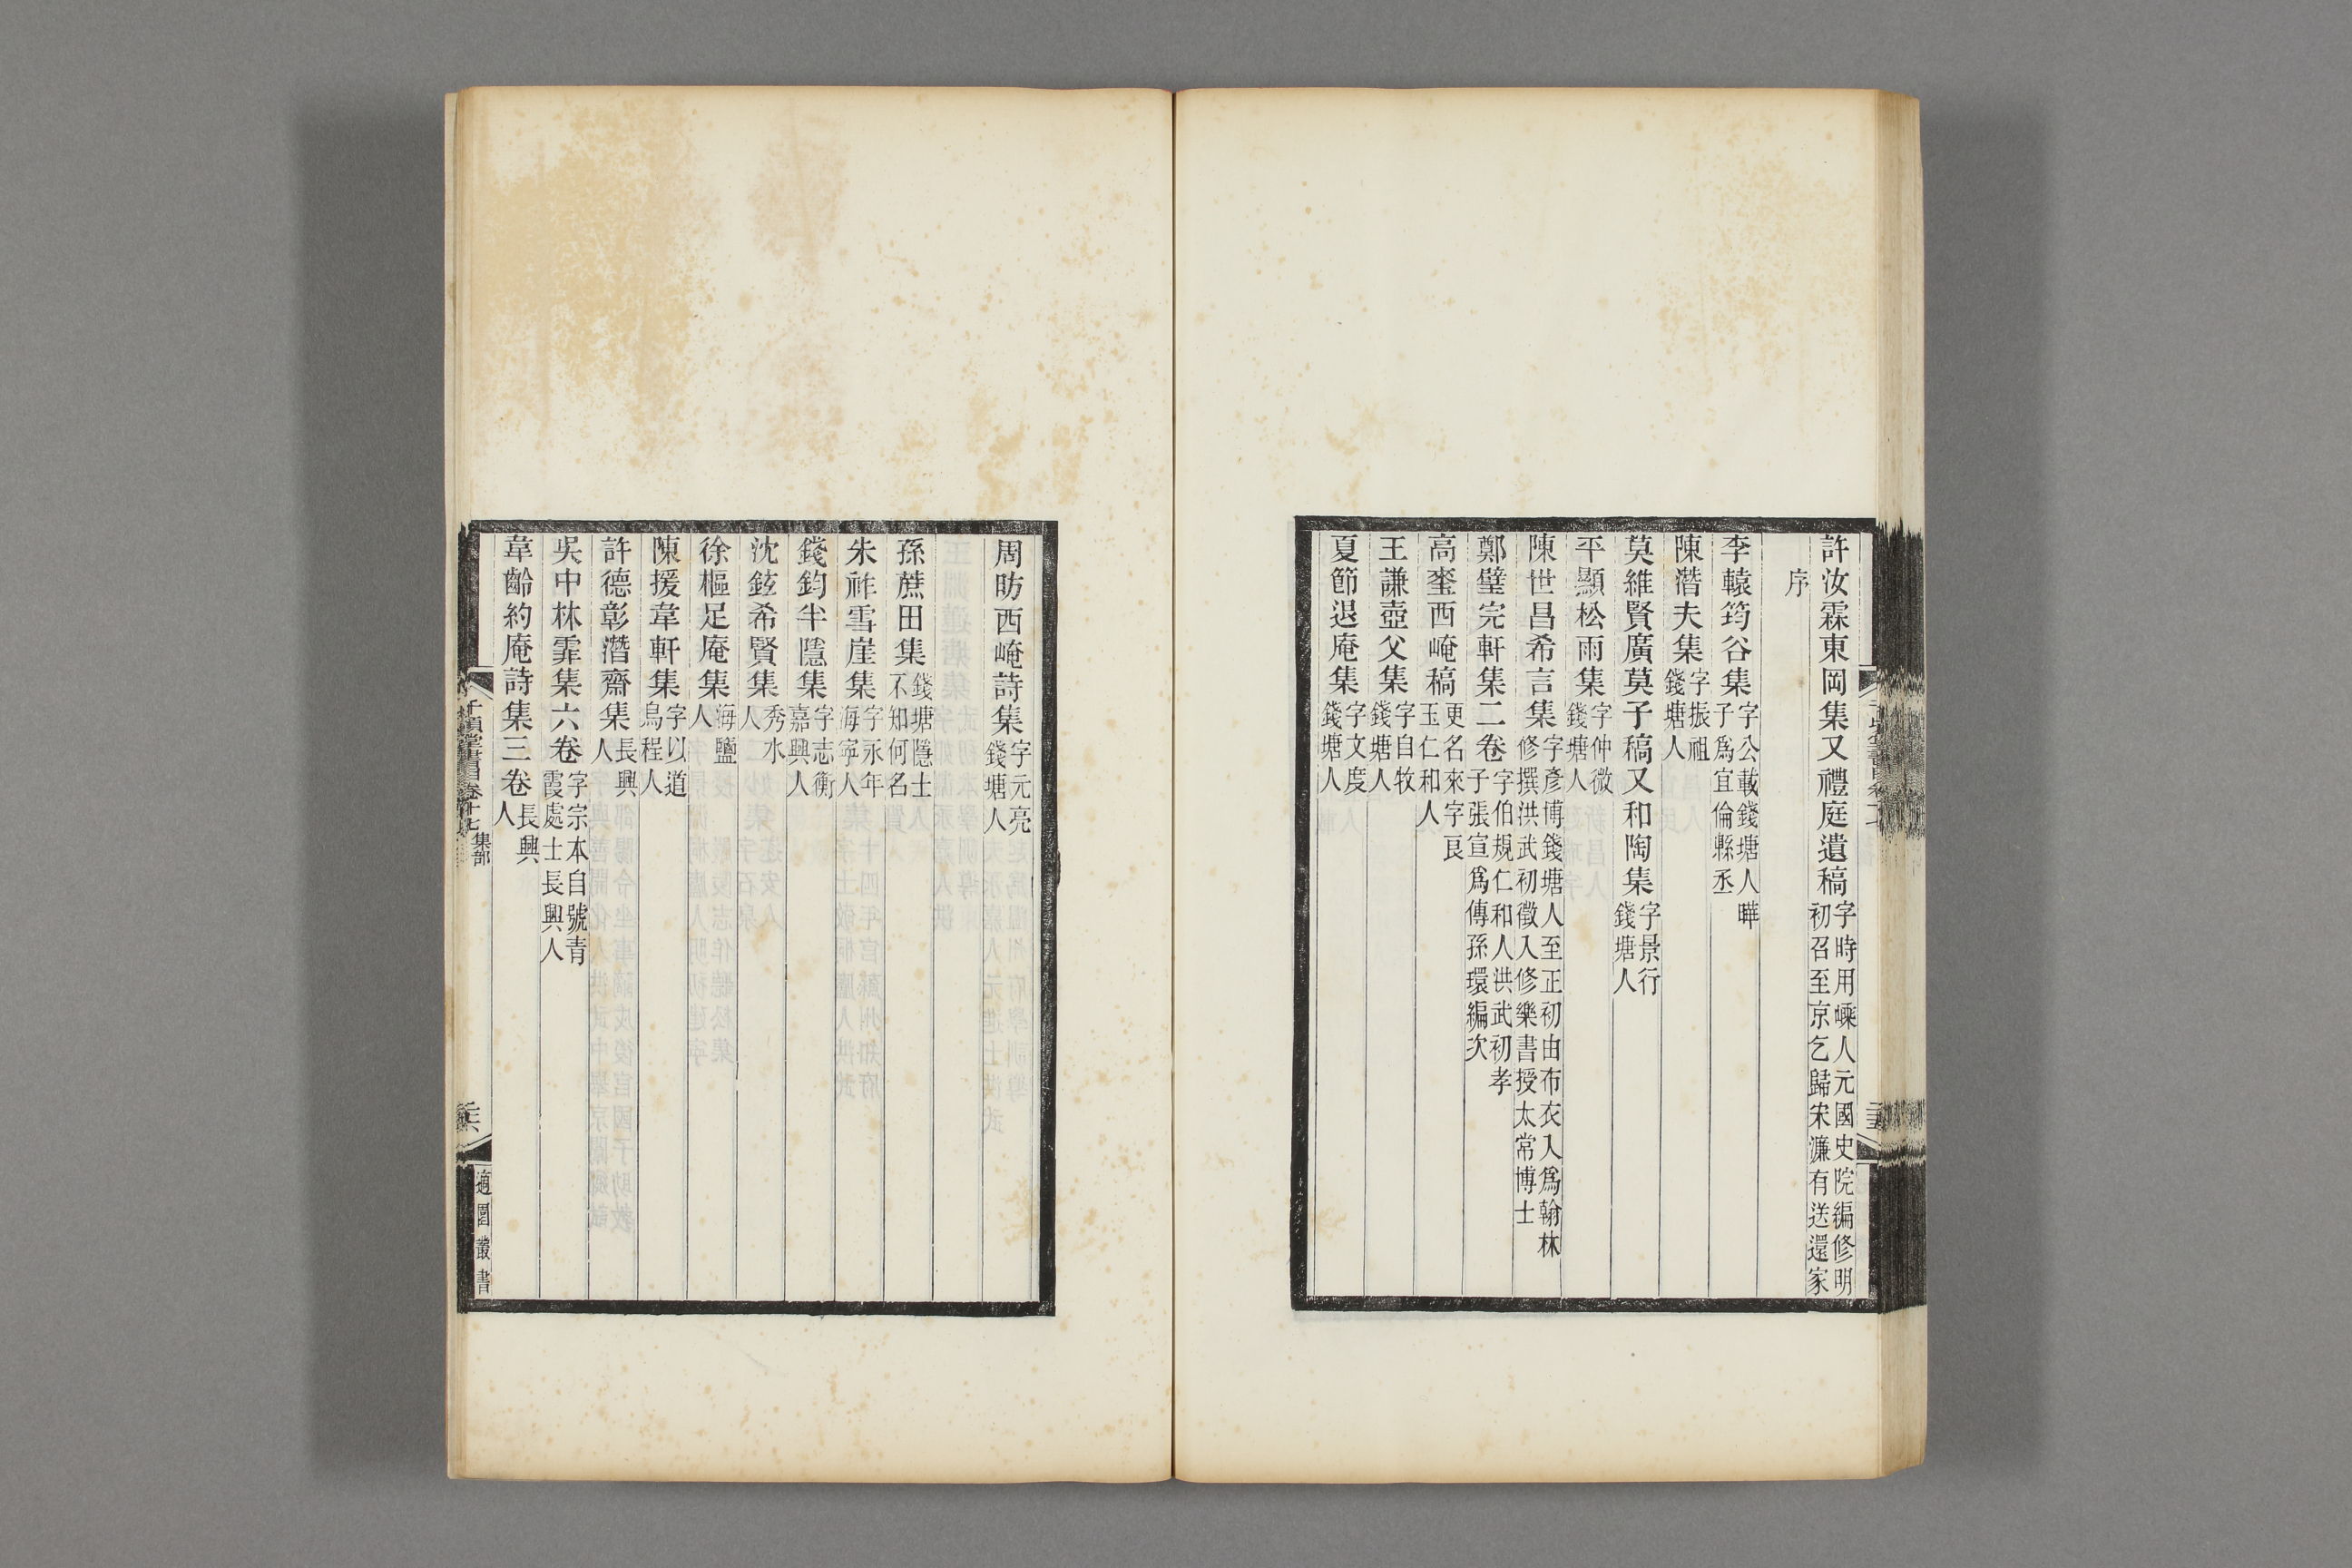 許汝霖東岡集又禮庭遺稿字時用嵊人元國史院編修明初召至京乞歸宋濂有送還家
序
李轅筠谷集字公載錢塘人曄子爲宜倫縣丞
陳潛夫集字振祖錢塘人
莫維賢廣莫子稿又和陶集字景行錢塘人
平顯松雨集字仲微錢塘人
陳世昌希言集字彥博錢塘人至正初由布衣入爲翰林修撰洪武初徵入修樂書授太常博士
鄭璧完軒集二卷字伯規仁和人洪武初孝子張宣爲傳孫環編次
高䡖西崦稿更名來字艮玉仁和人
王謙壺父集字自牧錢塘人
夏節退庵集字文度錢塘人
周昉西崦詩集字元亮錢塘人
孫蔗田集錢塘隱士不知何名
朱祚雪崖集字永年海寧人
錢鈞半隱集字志衡嘉興人
沈鉉希賢集秀水人
徐樞足庵集海鹽人
陳援韋軒集字以道烏程人
許德彰潛齋集長興人
吳中林霏集六卷字宗本自號青霞處士長興人
韋齡約庵詩集三卷長興人
千頃堂書目卷十七 集部
二十六
適園叢書